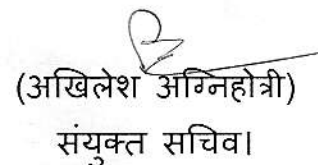 (अखिलेश अग्निहोत्री)
संयुक्त सचिव।